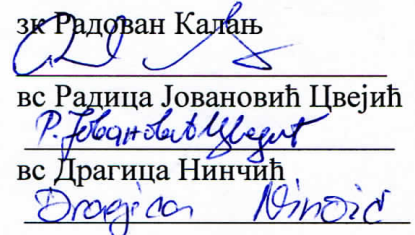 зк Радован Калањ
вс Радица Јовановић Цвејић
Р. Јовановић Цвејић
вс Драгица Нинчић
Dragica Ninčić